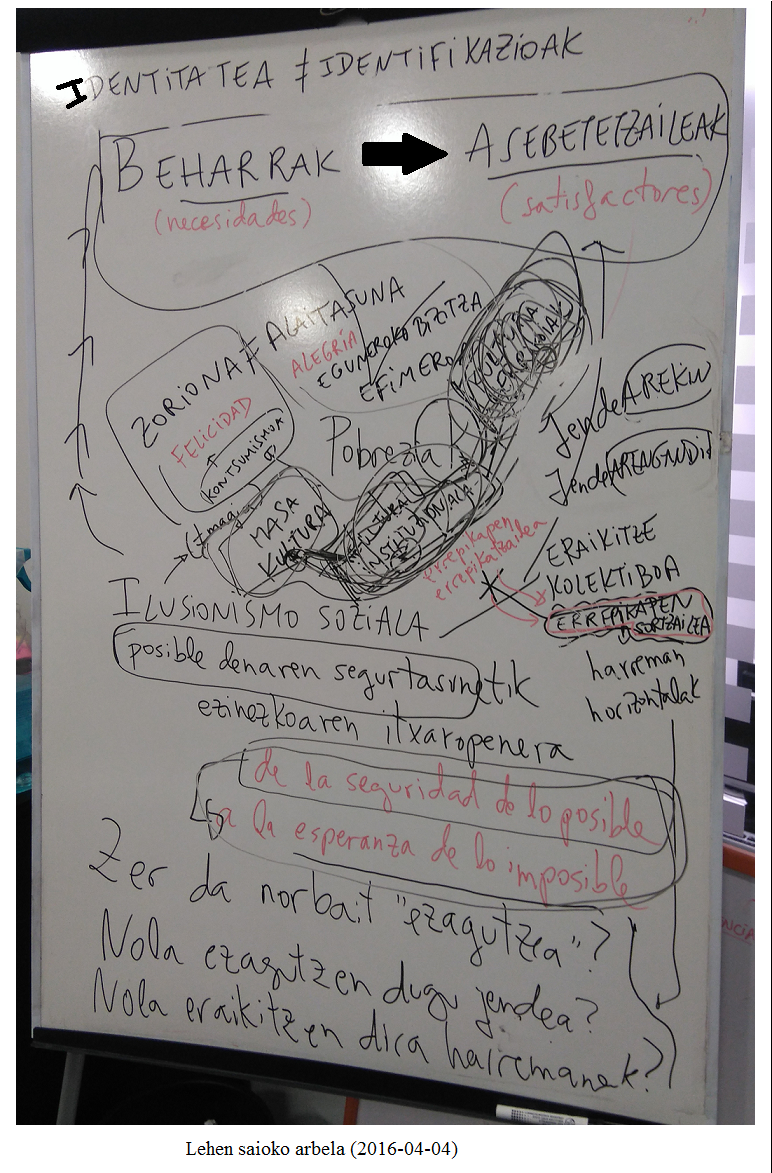 IDENTITATEA ≠ IDENTIFIKAZIOAK
BEHARRAK → ASEBETETZAILEAK
(necesidades) (satisfactores)
ZORIONA ≠ ALAITASUNA
FELICIDAD
ALEGRÍA
KONTSUMISMOA
EGUNEROKO BIZITZA
EFIMEROA
KULTURA
Pobrezia
JendeAREKIN
JendeARENGANDIK
MASA
KULTURA
KULTURA
INSTITUZIONALA
errepikapen
errepikatzailea
ERAIKITZE
KOLEKTIBOA
ERREPIKAPEN
SORTZAILEA
harreman
horizontalak
ILUSIONISMO SOZIALA
posible denaren segurtasunetik
ezinezkoaren itxaropenera
de la seguridad de lo posible
a la esperanza de lo imposible
Zer da norbait "ezagutzea"?
Nola ezagutzen dugu jendea?
Nola eraikitzen dira harremanak?
Lehen saioko arbela (2016-04-04)